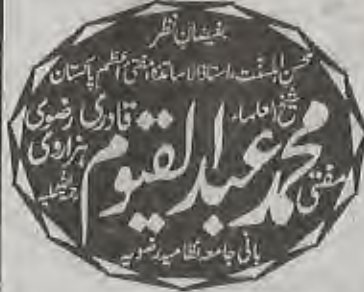 بفیضانِ نظر
محسنِ اہلسنت، استاذ الاساتذہ، مفتی اعظم پاکستان
شیخ العلماء
مفتی محمد عبدالقیوم قادری رضوی ہزاروی
بانی جامعہ نظامیہ رضویہ